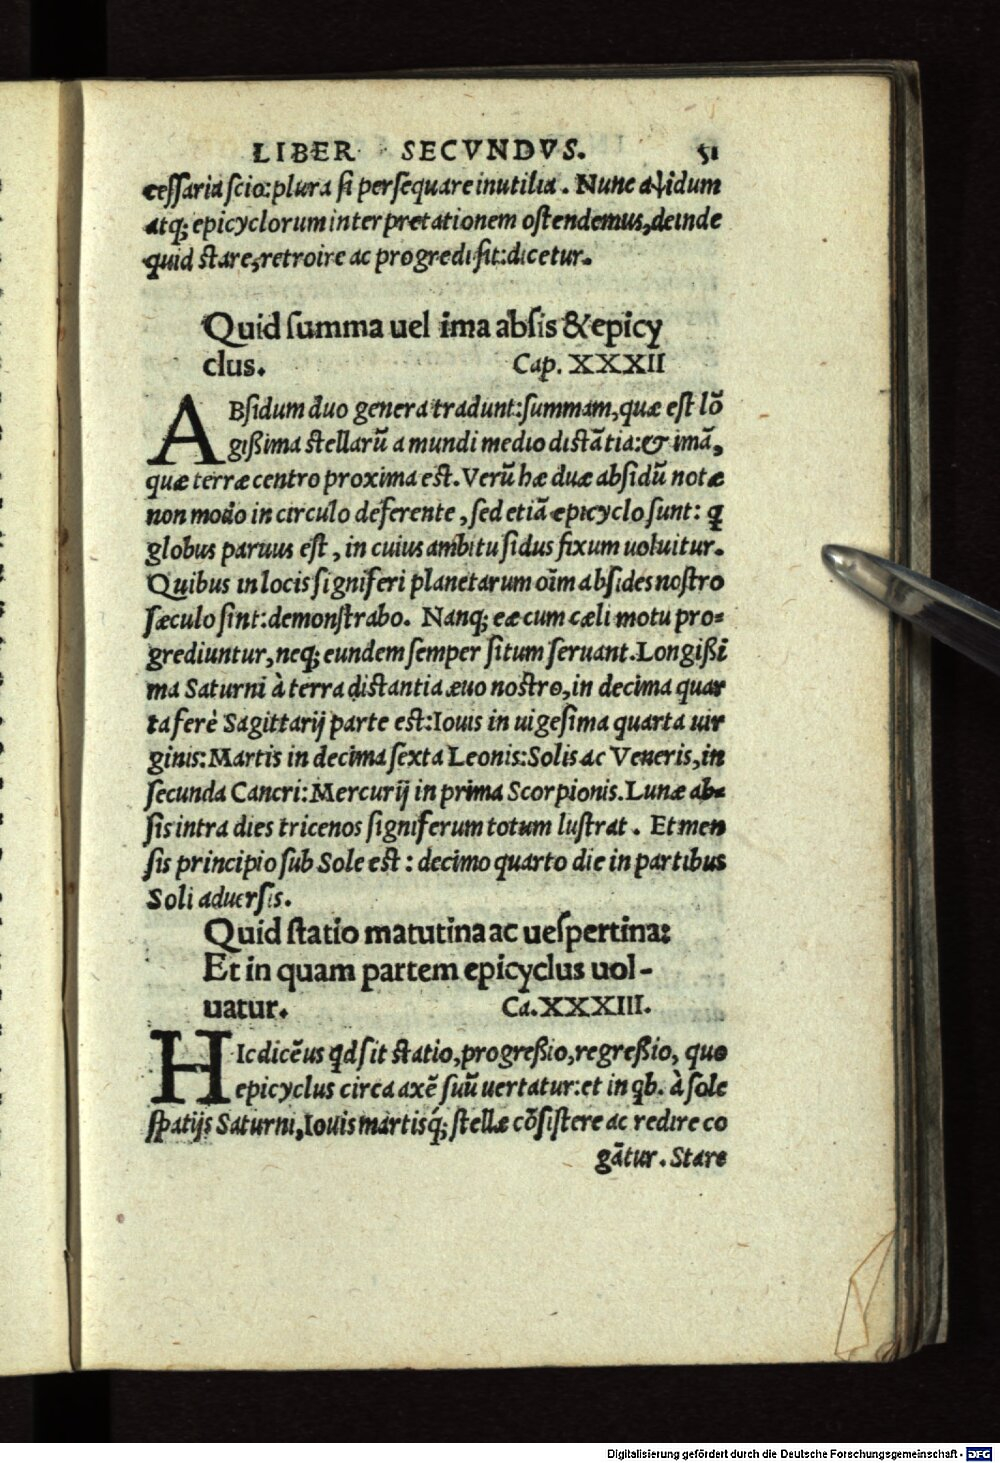 LIBER SECVNDVS. 51
cessaria scio: plura si persequare inutilia. Nunc absidum
atq; epicyclorum interpretationem ostendemus, deinde
quid stare, retroire ac progredi sit: dicetur.
Quid summa uel ima absis & epicy
clus. Cap. XXXII
ABsidum duo genera tradunt: summam, quæ est lō
gißima stellarū a mundi medio distātia: & imā,
quæ terræ centro proxima est. Verū hæ duæ absidū notæ
non modo in circulo deferente, sed etiā epicyclo sunt: q
globus paruus est, in cuius ambitu sidus fixum uoluitur.
Quibus in locis signiferi planetarum oīm absides nostro
sæculo sint: demonstrabo. Nanq; eæ cum cæli motu pro=
grediuntur, neq; eundem semper situm seruant. Longißi
ma Saturni à terra distantia æuo nostro, in decima quar
ta ferè Sagittarij parte est: Iouis in uigesima quarta uir
ginis: Martis in decima sexta Leonis: Solis ac Veneris, in
secunda Cancri: Mercurij in prima Scorpionis. Lunæ ab=
sis intra dies tricenos signiferum totum lustrat. Et men
sis principio sub Sole est: decimo quarto die in partibus
Soli aduersis.
Quid statio matutina ac uespertina:
Et in quam partem epicyclus uol-
uatur. Ca. XXXIII.
HIc dicēus qd sit statio, progreßio, regreßio, quo
epicyclus circa axē suū uertatur: et in qb. à sole
spatijs Saturni, Iouis martisq́; stellæ cōsistere ac redire co
gātur. Stare
Digitalisierung gefördert durch die Deutsche Forschungsgemeinschaft - DFG